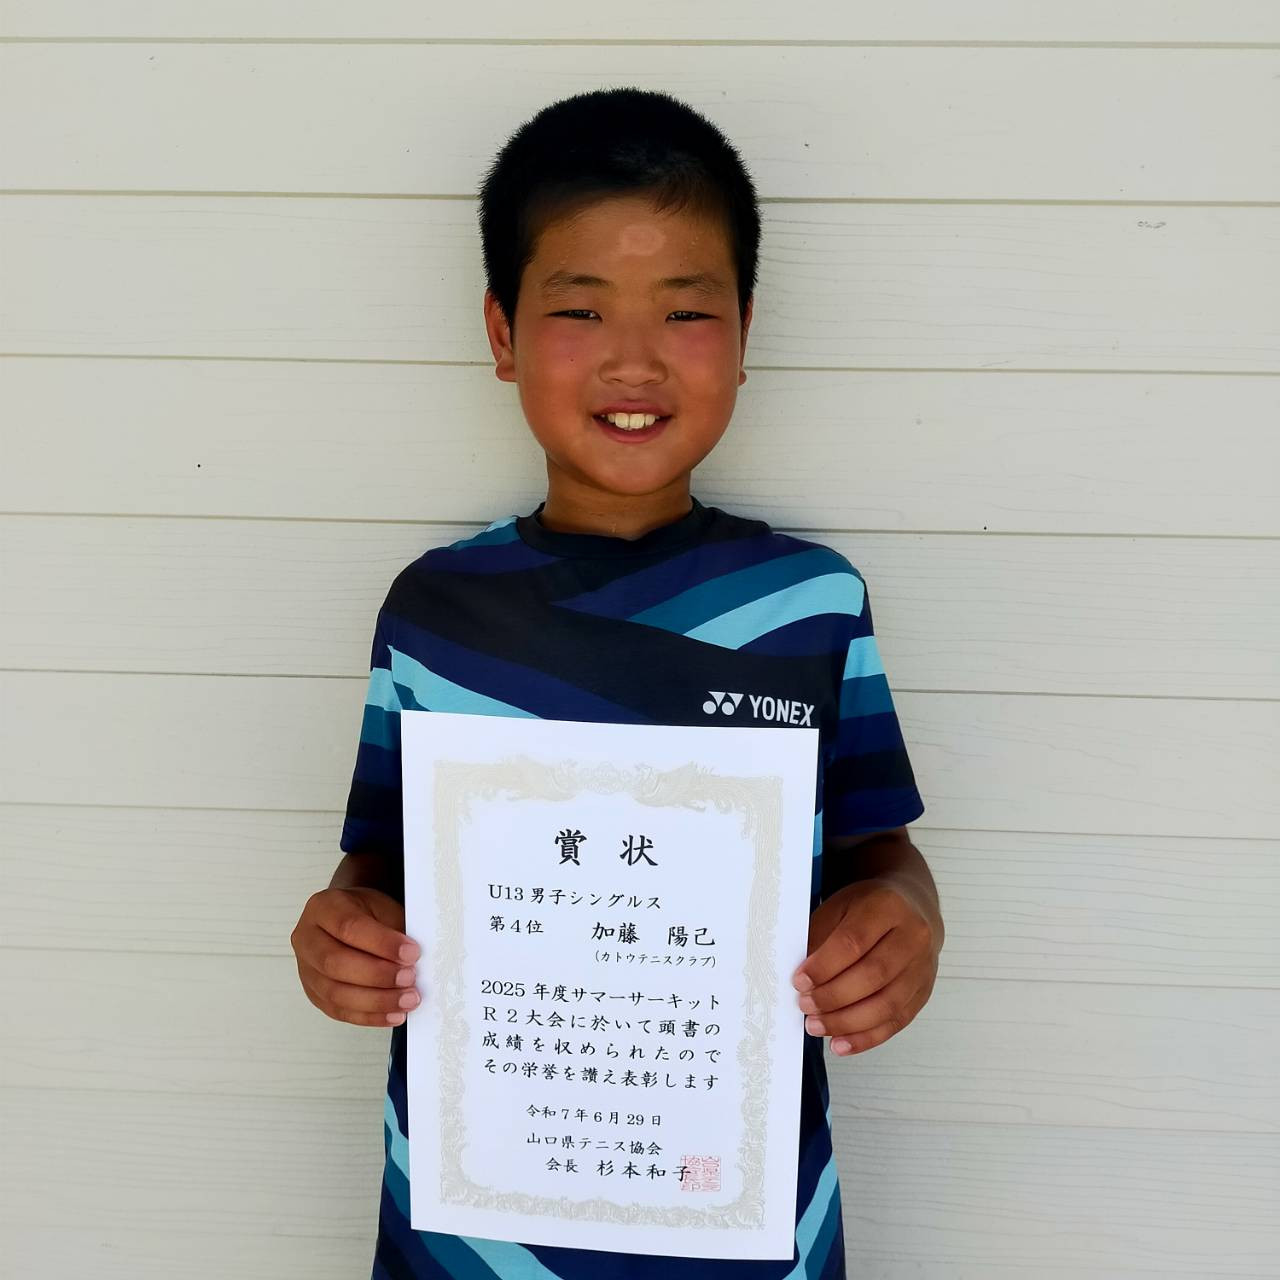 YONEX
賞状
U13 男子シングルス
第4位 加藤 陽己
(カトウテニスクラブ)
2025 年度サマーサーキット
R2大会に於いて頭書の
成績を収められたので
その栄誉を讃え表彰します
令和7年6月29日
山口県テニス協会
会長 杉本和子